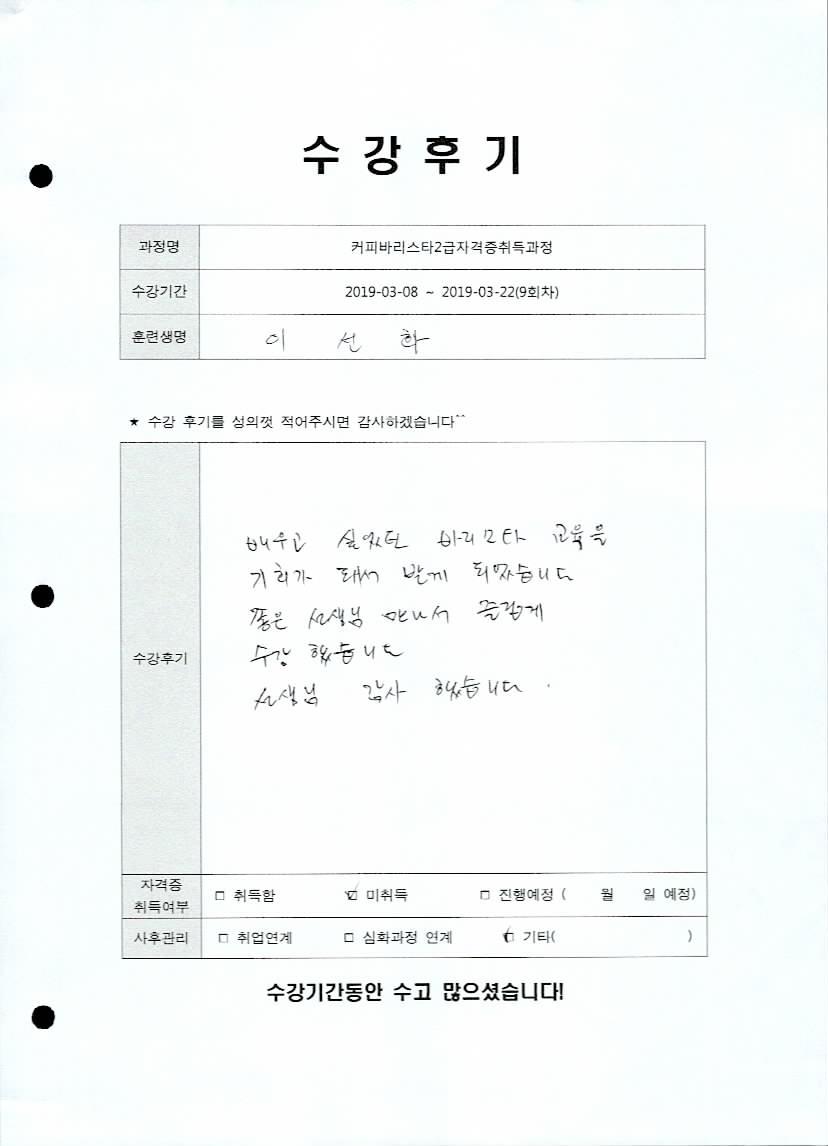 수 강 후 기
과정명 커피바리스타2급자격증취득과정
수강기간 2019-03-08 ~ 2019-03-22(9회차)
훈련생명 이 선 화
★ 수강 후기를 성의껏 적어주시면 감사하겠습니다^^
수강후기
배우고 싶었던 바리스타 교육을
기회가 돼서 받게 되었습니다
좋은 선생님 만나서 즐겁게
수강 했습니다
선생님 감사 했습니다.
자격증
취득여부 □ 취득함 ☑ 미취득 □ 진행예정 ( 월 일 예정)
사후관리 □ 취업연계 □ 심화과정 연계 ☑ 기타( )
수강기간동안 수고 많으셨습니다!